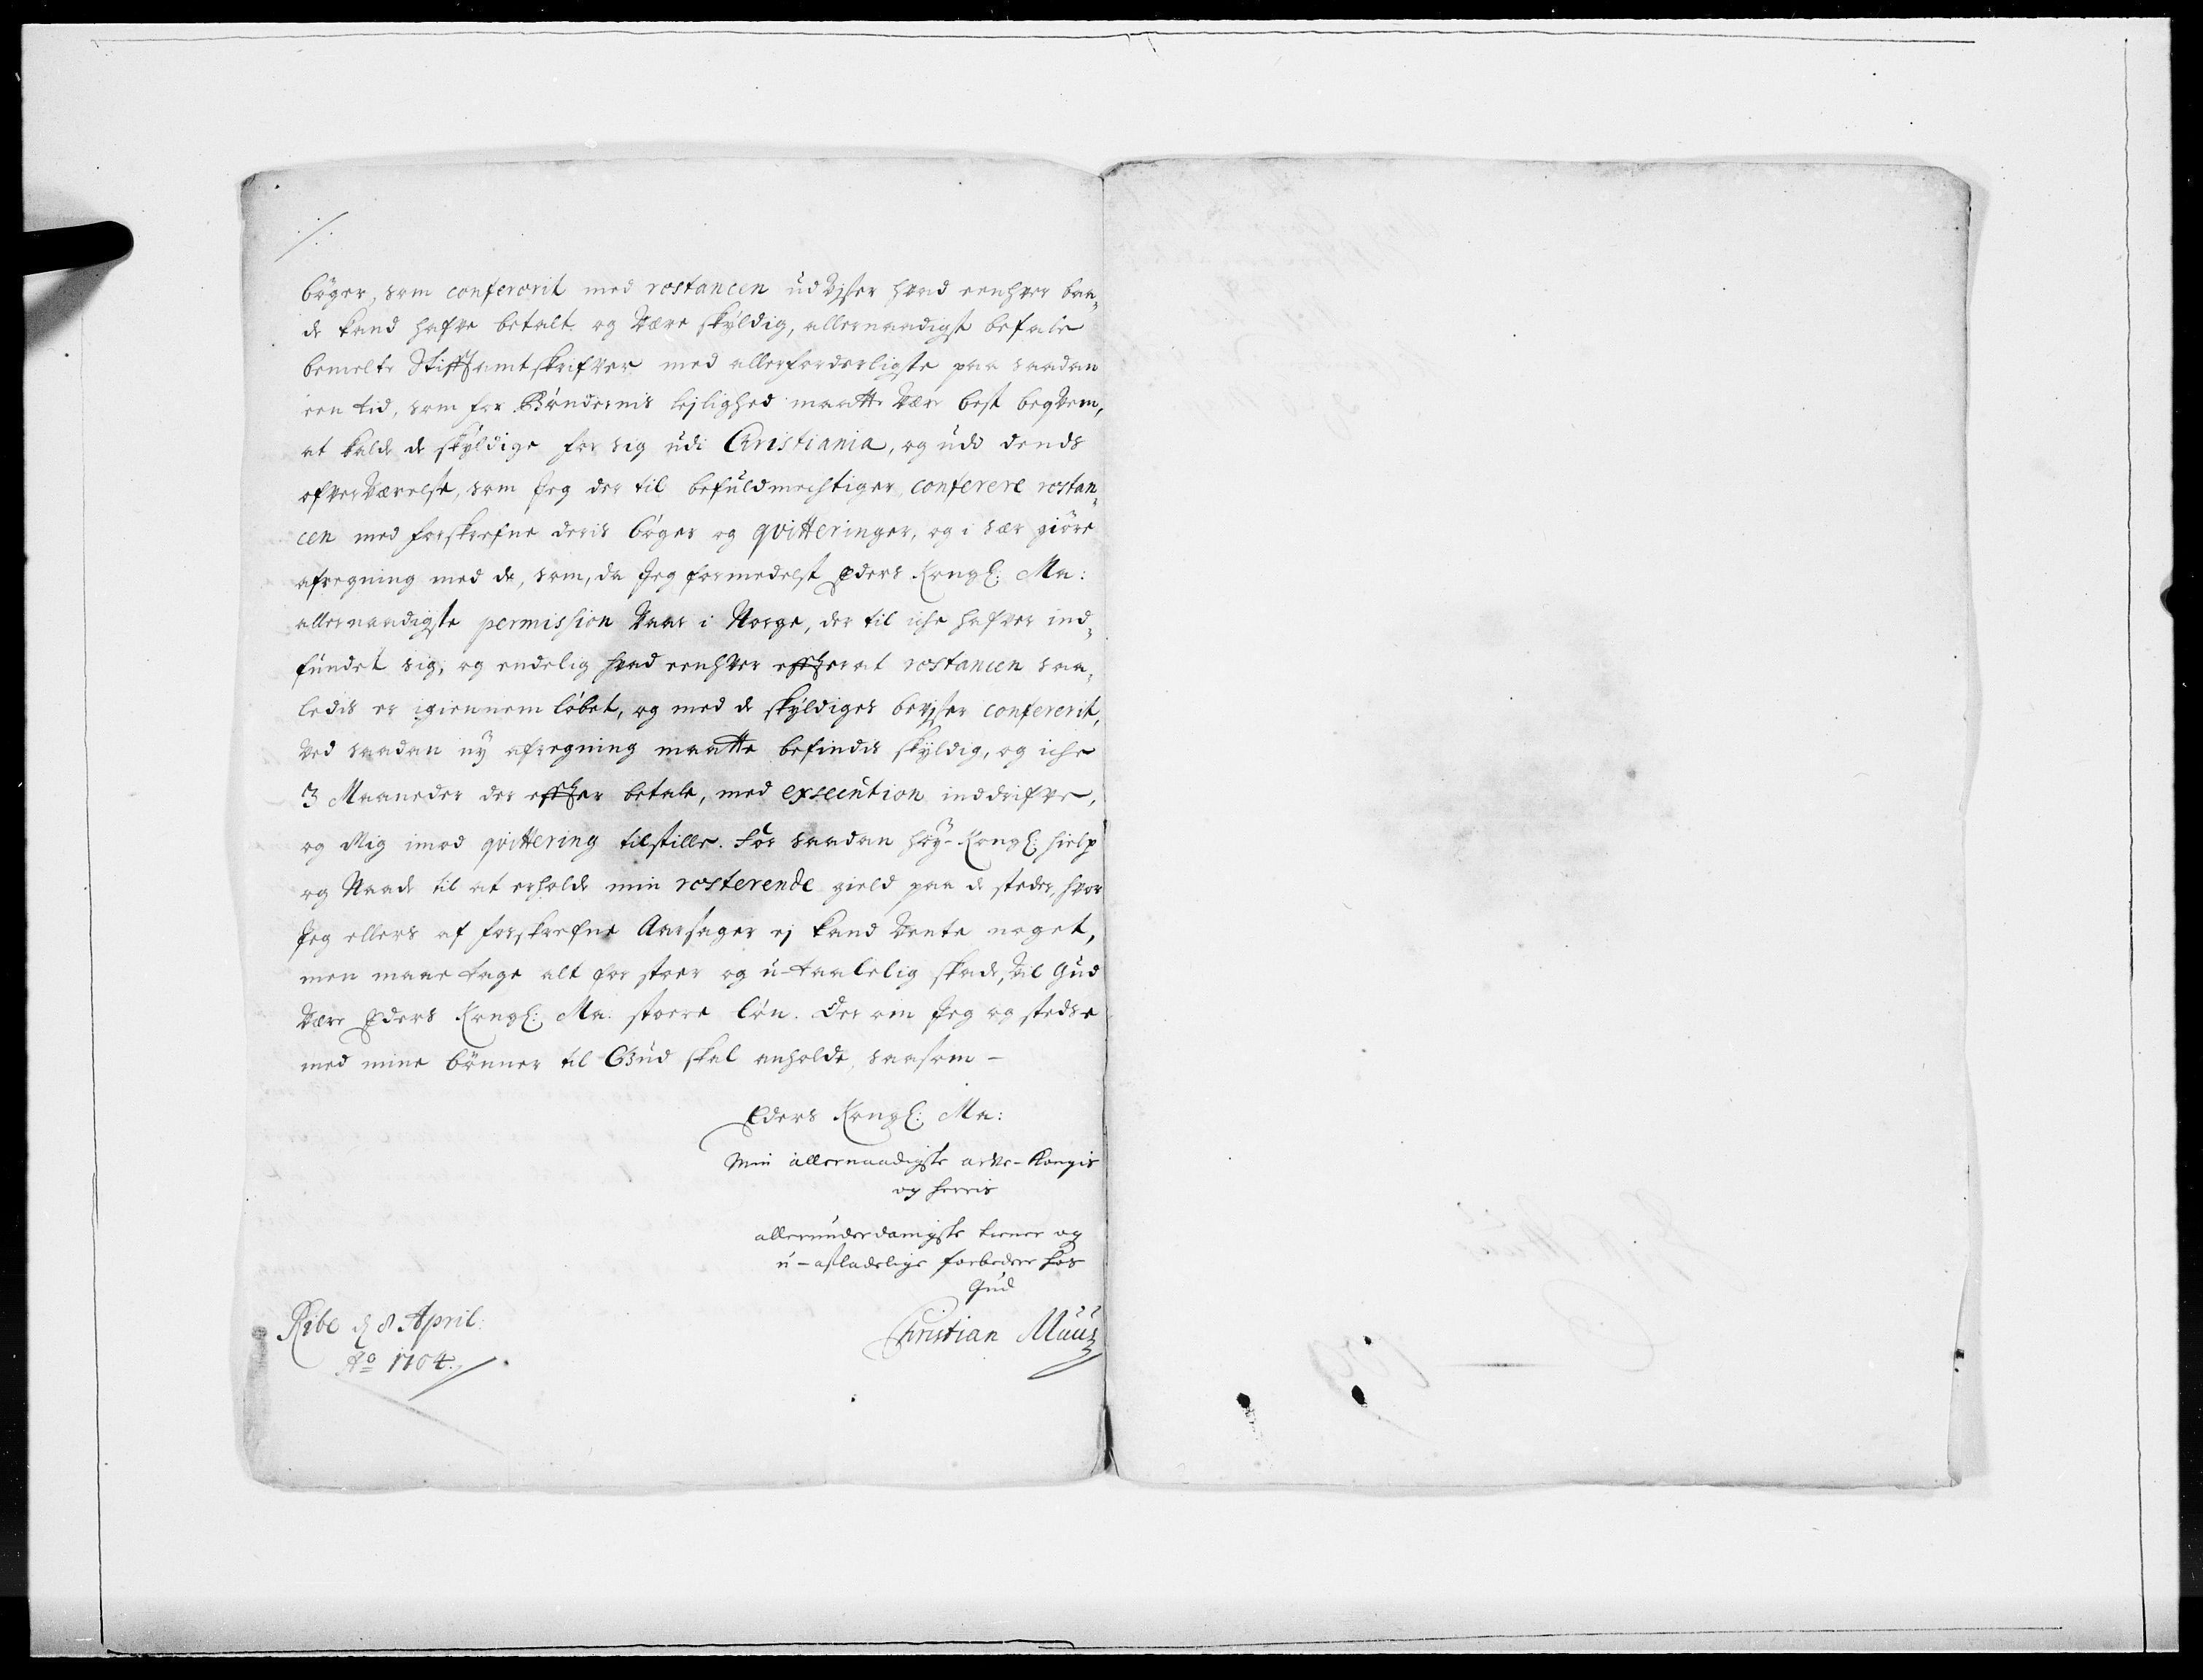 ./.
bøger, som confererit med restancen udVjser hvad eenhver baa-
de kand hafve betalt og Være skyldig, allernaadigst befale
bemelte Stifftamtskrifver med allerforderligste paa saadan
een tid, som for Bøndernis lejlighed maatte Vær best beqVem,
at kalde de skyldige for sig udi Christiania, og udi dends
ofverVærelse, som Jeg der til befuldmechtiger, conferere restan-
cen med forskrefne deris bøger og qvitteringer, og i sær giøre
afregning med de, som, da Jeg formedelst Eders Kongl: Ma:
allernaadigste permission Vaar i Norge, der til iche hafver ind-
fundet sig, og endelig hvad eenhver effterat restancen saa-
ledis er igiennem løbet, og med de skyldiges beVjser confererit,
Ved saadan ny afregning maatte befindis skyldig, og iche
3 Maaneder der effter betale, med execution inddrifve,
og Mig imod qvittering tilstille. For saadan høy-Kongl: hielp
og Naade til at erholde min resterende gield paa de steder, hvor
Jeg ellers af forskrefne Aarsager ej kand Vente noget,
men maae tage alt for stoer og u-taalelig skade, Vil Gud
Være Eders Kongl: Ma: stoere løn. Der om Jeg og stedse
med mine bønner til Gud skal anholde, saasom -
Eders Kongl: Ma:
Min allernaadigste arve-Kongis
og Herris
allerunderdanigste tiener og
u-afladelige forbeder hos
Gud
Christian Muus
Ribe d 8 April:
Ao 1704.